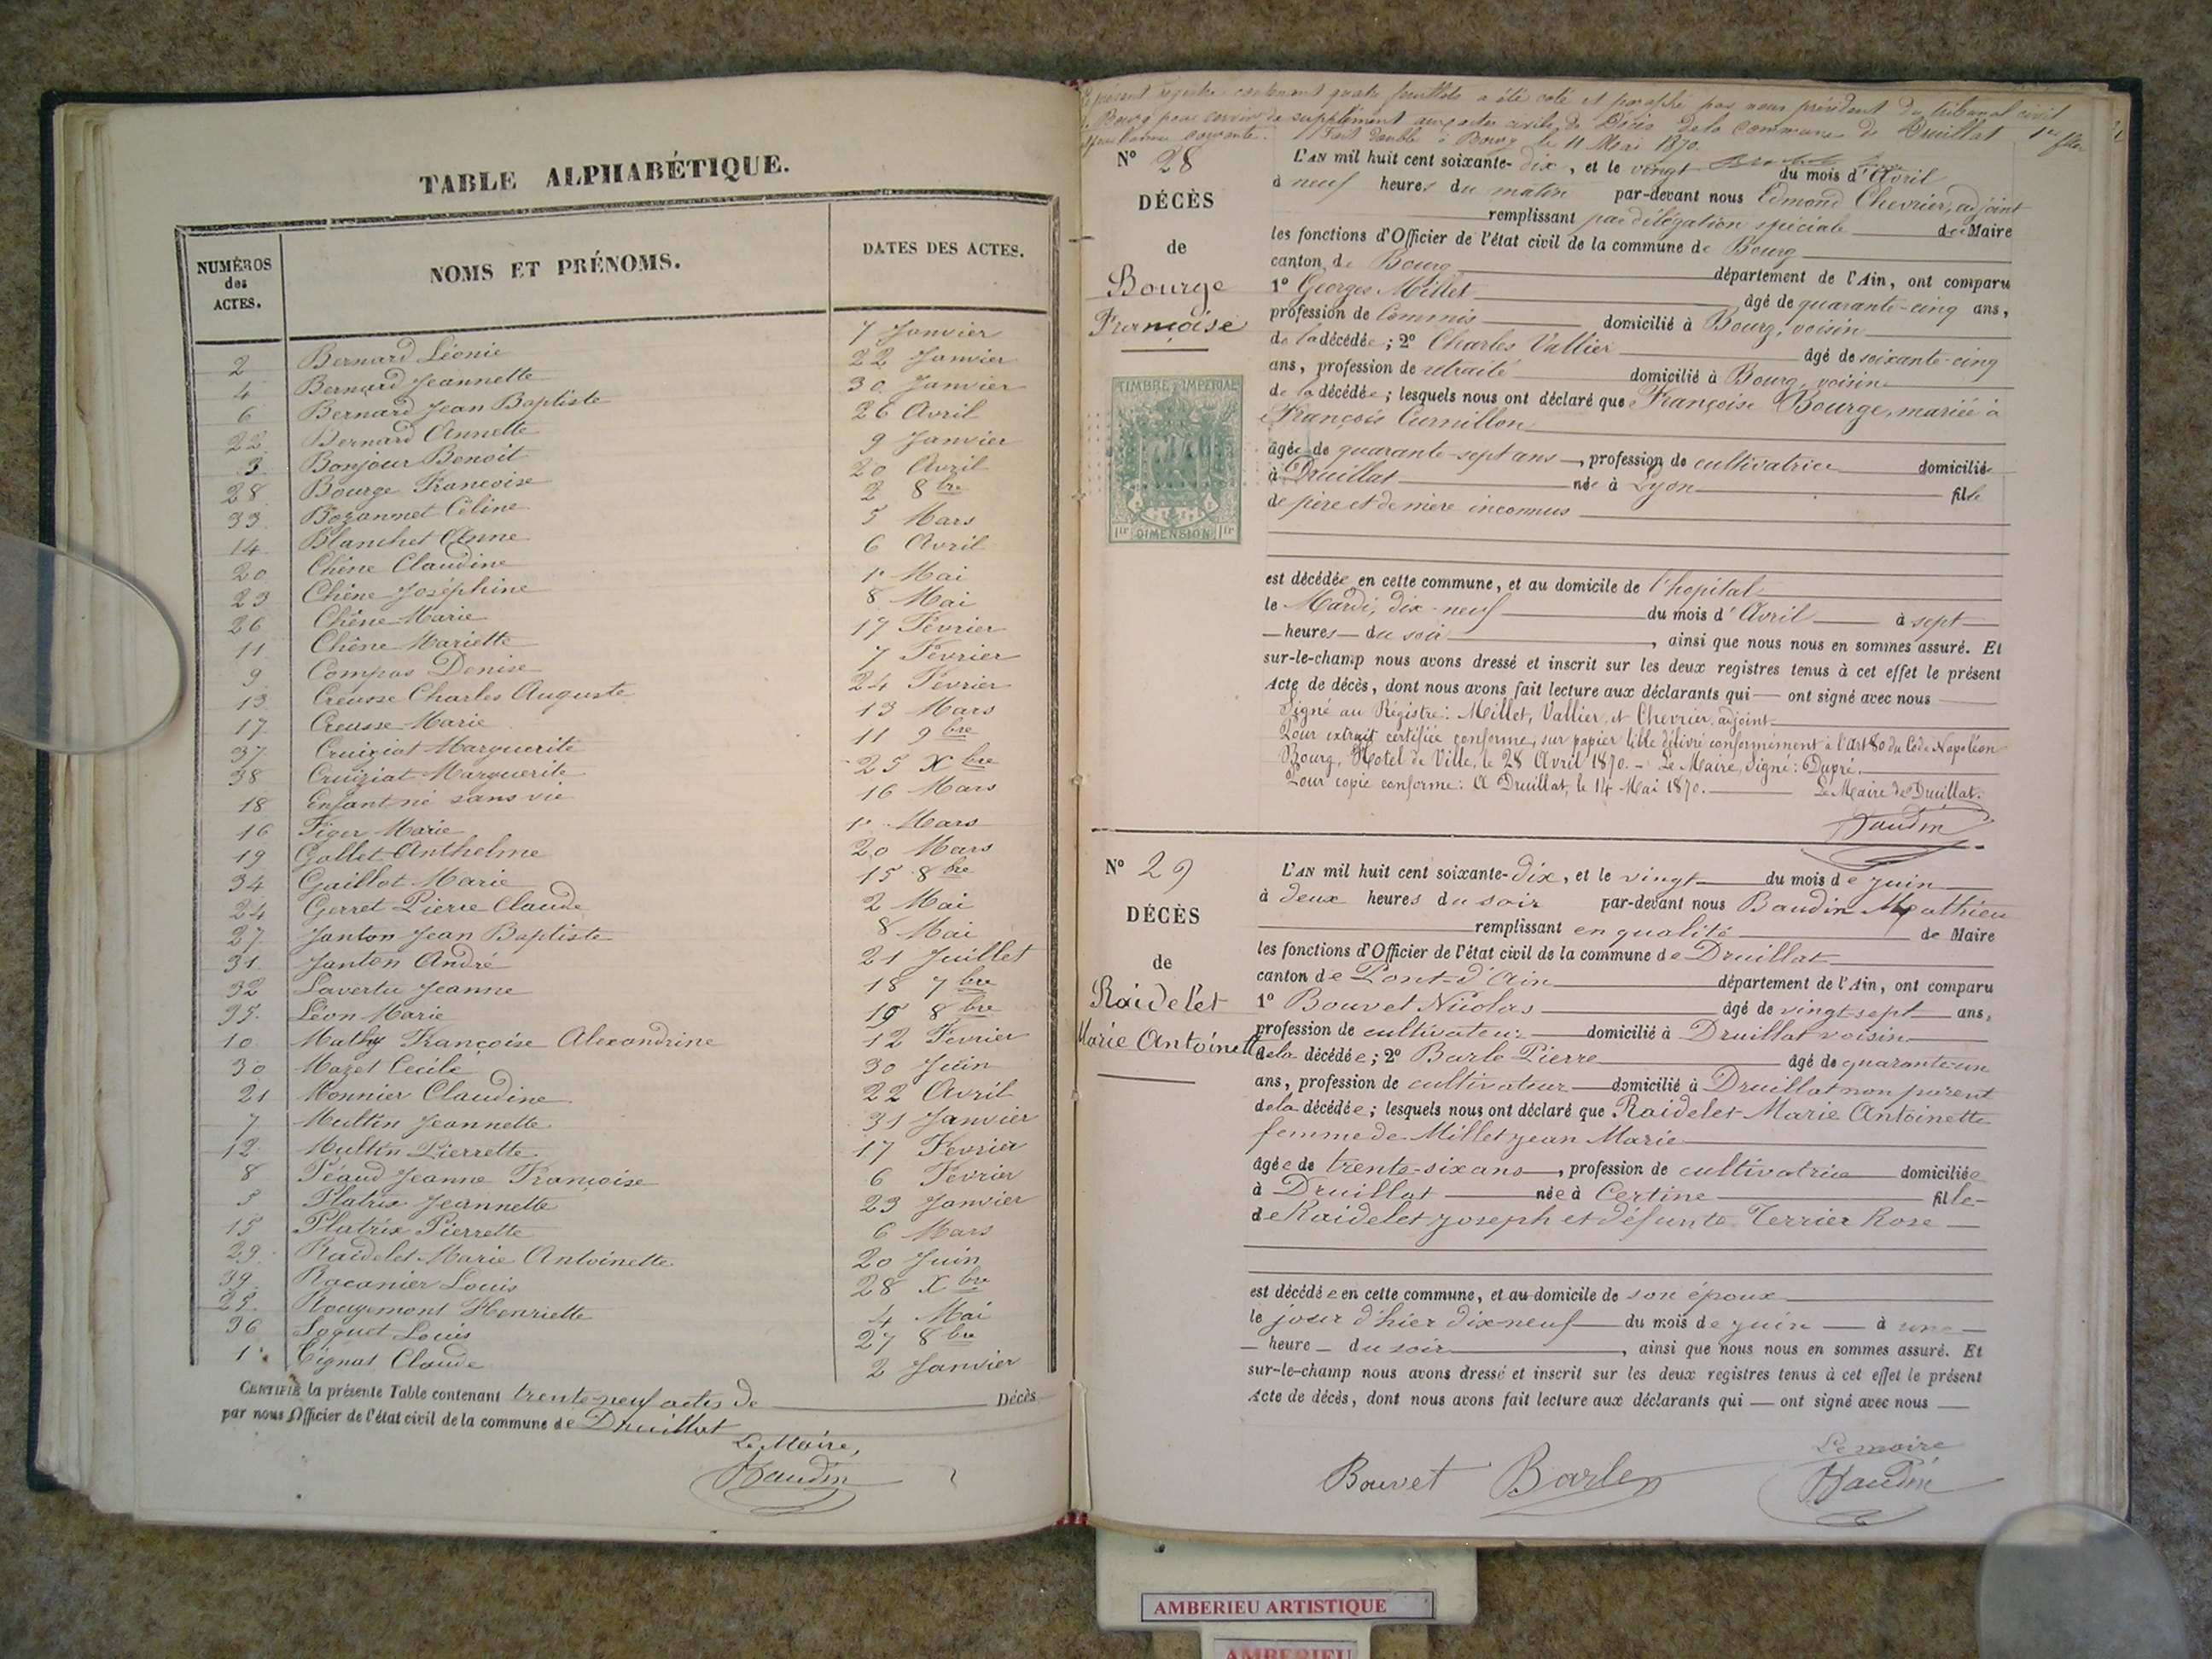 TABLE ALPHABÉTIQUE.
NUMÉROS des ACTES.
NOMS ET PRÉNOMS.
DATES DES ACTES.
2 Bernard Léonie 7 Janvier
4 Bernard Jeannette 22 Janvier
6 Bernard Jean Baptiste 30 Janvier
22 Bernard Annette 26 Avril
3 Bonjour Benoit 9 Janvier
28 Bourge Francoise 20 Avril
33 Bozonnet Céline 2 8bre
14 Blanchet Anne 5 Mars
20 Chêne Claudine 6 Avril
23 Chêne Joséphine 1er Mai
26 Chêne Marie 8 Mai
11 Chêne Mariette 17 Fevrier
9 Compas Denise 7 Fevrier
13 Creusse Charles Auguste 24 Fevrier
17 Creusse Marie 13 Mars
37 Cruiziat Marguerite 11 9bre
38 Cruiziat Marguerite 25 Xbre
18 Enfant né sans vie 16 Mars
16 Figer Marie 1er Mars
19 Gallet Anthelme 20 Mars
34 Gaillot Marie 15 8bre
24 Gerret Pierre Claude 2 Mai
27 Janton Jean Baptiste 8 Mai
31 Janton André 21 Juillet
32 Lavertu Jeanne 18 7bre
35 Léon Marie 19 8bre
10 Mathy Françoise Alexandrine 12 Fevrier
30 Mazet Cécile 30 Juin
21 Monnier Claudine 22 Avril
7 Multin Jeannette 31 Janvier
12 Multin Pierrette 17 Fevrier
8 Péaud Jeanne Françoise 6 Fevrier
5 Platrix Jeannette 23 Janvier
15 Platrix Pierrette 6 Mars
29 Raidelet Marie Antoinette 20 Juin
39 Racanier Louis 28 Xbre
25 Rougemont Henriette 4 Mai
36 Soquet Louis 27 8bre
1 Tignat Claude 2 Janvier
CERTIFIÉ la présente Table contenant trente-neuf actes de Décès
par nous Officier de l'état civil de la commune de Druillat
Le Maire,
Baudin
Le présent registre contenant quatre feuillets a été coté et paraphé par nous président du tribunal civil
de Bourg pour servir de supplément aux actes civils de Décès de la commune de Druillat 1er flle
Fait double à Bourg le 11 Mai 1870.
N° 28
DÉCÈS
de
Bourge
Françoise
TIMBRE IMPÉRIAL
1fr DIMENSION 1fr
L'AN mil huit cent soixante-dix, et le vingt du mois d'Avril
à neuf heures du matin par-devant nous Edmond Chevrier, adjoint
remplissant par délégation spéciale du Maire
les fonctions d'Officier de l'état civil de la commune de Bourg
canton de Bourg département de l'Ain, ont comparu
1° Georges Millet âgé de quarante-cinq ans,
profession de Commis domicilié à Bourg, voisin
de la décédée; 2° Charles Vallier âgé de soixante-cinq
ans, profession de retraité domicilié à Bourg, voisin
de la décédée; lesquels nous ont déclaré que Françoise Bourge, mariée à
François Curnillon
âgée de quarante-sept ans, profession de cultivatrice domiciliée
à Druillat née à Lyon fille
de père et de mère inconnus
est décédée en cette commune, et au domicile de l'hôpital
le Mardi, dix-neuf du mois d'Avril à sept
heures du soir, ainsi que nous nous en sommes assuré. Et
sur-le-champ nous avons dressé et inscrit sur les deux registres tenus à cet effet le présent
Acte de décès, dont nous avons fait lecture aux déclarants qui ont signé avec nous
Signé au Régistre: Millet, Vallier, et Chevrier, adjoint
Pour extrait certifiée conforme, sur papier libre délivré conformément à l'art 80 du Code Napoléon
Bourg, Hotel de Ville, le 28 Avril 1870. - Le Maire, Signé: Dupré.
Pour copie conforme: A Druillat, le 14 Mai 1870. Le Maire de Druillat.
Baudin
N° 29
DÉCÈS
de
Raidelet
Marie Antoinette
L'AN mil huit cent soixante-dix, et le vingt du mois de juin
à deux heures du soir par-devant nous Baudin Mathieu
remplissant en qualité de Maire
les fonctions d'Officier de l'état civil de la commune de Druillat
canton de Pont-d'Ain département de l'Ain, ont comparu
1° Bouvet Nicolas âgé de vingt-sept ans,
profession de cultivateur domicilié à Druillat voisin
de la décédée; 2° Barle Pierre âgé de quarante-un
ans, profession de cultivateur domicilié à Druillat non parent
de la décédée; lesquels nous ont déclaré que Raidelet Marie Antoinette
femme de Millet jean Marie
âgée de trente-six ans, profession de cultivatrice domiciliée
à Druillat née à Certine fille
de Raidelet joseph et défunte Terrier Rose
est décédée en cette commune, et au domicile de son époux
le jour d'hier dix-neuf du mois de juin à une
heure du soir, ainsi que nous nous en sommes assuré. Et
sur-le-champ nous avons dressé et inscrit sur les deux registres tenus à cet effet le présent
Acte de décès, dont nous avons fait lecture aux déclarants qui ont signé avec nous
Le maire
Bouvet Barle Baudin
AMBERIEU ARTISTIQUE
AMBERIEU